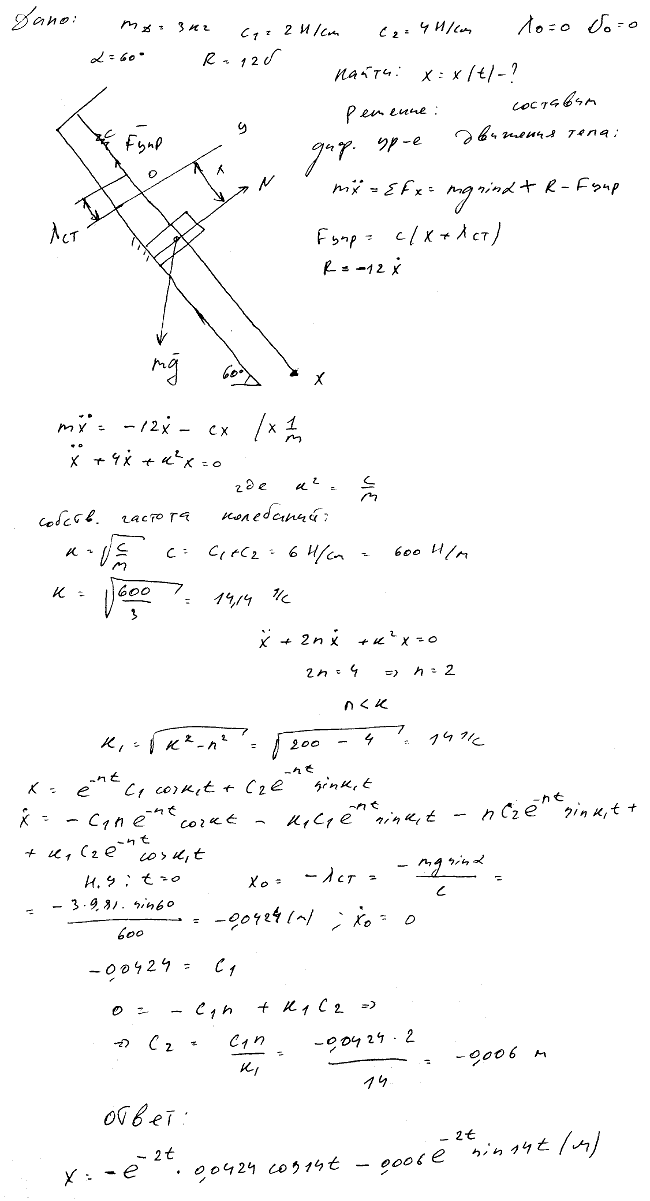 Дано: m_D = 3кг c₁ = 2 Н/cm c₂ = 4 Н/cm λ₀=0 υ₀=0
α=60° R = 12ῡ
найти: x = x(t) - ?
Решение: составим
диф. ур-е движения тела:
mẍ = ΣFx = mg sinα + R - Fупр
Fупр = c(x + λст)
R = -12ẋ
c
F̄упр
y
0
x
N
λст
mḡ
60°
x
mẍ = -12ẋ - cx /× 1/m
ẍ + 4ẋ + к²x = 0
где к² = c/m
собств. частота колебаний:
к = √(c/m) c = c₁+c₂ = 6 Н/cm = 600 Н/м
к = √(600/3) = 14,14 1/c
ẍ + 2nẋ + к²x = 0
2n = 4 ⇒ n = 2
n < к
к₁ = √(к² - n²) = √(200 - 4) = 14 1/c
x = e^(-nt) C₁ cos к₁t + C₂ e^(-nt) sin к₁t
ẋ = - C₁n e^(-nt) cos кt - к₁C₁ e^(-nt) sin к₁t - nC₂ e^(-nt) sin к₁t +
+ к₁C₂ e^(-nt) cos к₁t
Н.У: t=0 x₀ = -λст = -mg sinα/c =
= -3·9,81·sin60/600 = -0,0424 (м) ; ẋ₀ = 0
-0,0424 = C₁
0 = - C₁n + к₁C₂ ⇒
⇒ C₂ = C₁n/к₁ = -0,0424·2/14 = -0,006 м
Ответ:
x = -e^(-2t) · 0,0424 cos14t - 0,006e^(-2t) sin14t (м)